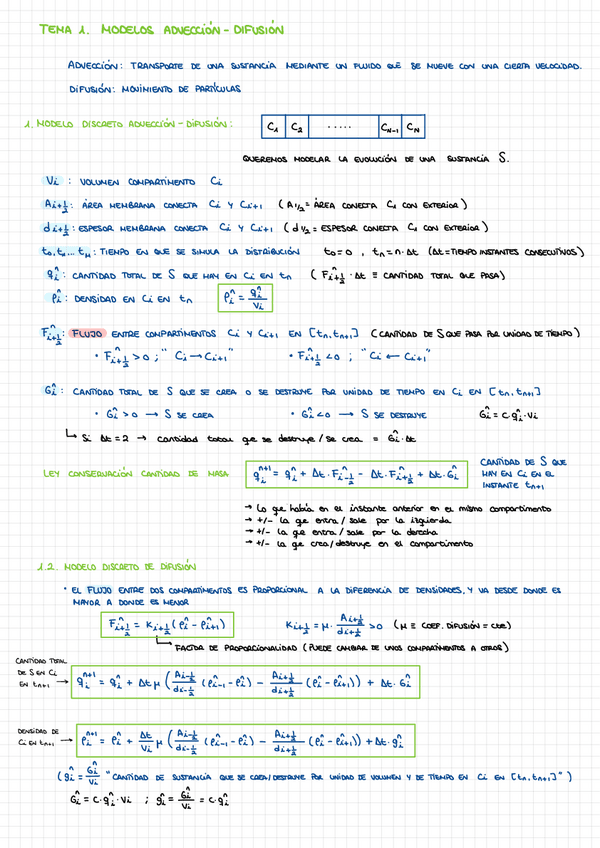 TEMA 1. MODELOS ADVECCIÓN - DIFUSIÓN
ADVECCIÓN: TRANSPORTE DE UNA SUSTANCIA MEDIANTE UN FLUIDO QUE SE MUEVE CON UNA CIERTA VELOCIDAD.
DIFUSIÓN: MOVIMIENTO DE PARTÍCULAS
1. MODELO DISCRETO ADVECCIÓN - DIFUSIÓN: C₁ C₂ ..... C_{N-1} C_N
QUEREMOS MODELAR LA EVOLUCIÓN DE UNA SUSTANCIA S.
Vi : VOLUMEN COMPARTIMENTO Ci
A_{i+½} : ÁREA MEMBRANA CONECTA Ci Y C_{i+1} (A_{1/2} = ÁREA CONECTA C₁ CON EXTERIOR)
d_{i+½} : ESPESOR MEMBRANA CONECTA Ci Y C_{i+1} (d_{1/2} = ESPESOR CONECTA C₁ CON EXTERIOR)
t₀, t₁, ... t_M : TIEMPO EN QUE SE SIMULA LA DISTRIBUCIÓN t₀=0 , t_n = n·Δt (Δt = TIEMPO INSTANTES CONSECUTIVOS)
q_i^n : CANTIDAD TOTAL DE S QUE HAY EN Ci EN t_n (F_{i+½}^n · Δt ≡ CANTIDAD TOTAL QUE PASA)
ρ_i^n : DENSIDAD EN Ci EN t_n ρ_i^n = q_i^n / V_i
F_{i+½}^n : FLUJO ENTRE COMPARTIMENTOS Ci Y C_{i+1} EN [t_n, t_{n+1}] (CANTIDAD DE S QUE PASA POR UNIDAD DE TIEMPO)
• F_{i+½}^n > 0 ; "Ci → C_{i+1}" • F_{i+½}^n < 0 ; "Ci ← C_{i+1}"
G_i^n : CANTIDAD TOTAL DE S QUE SE CREA O SE DESTRUYE POR UNIDAD DE TIEMPO EN Ci EN [t_n, t_{n+1}]
• G_i^n > 0 → S SE CREA • G_i^n < 0 → S SE DESTRUYE G_i^n = c·q_i^n·V_i
↳ Si Δt = 2 → cantidad total que se destruye / se crea = G_i^n·Δt
LEY CONSERVACIÓN CANTIDAD DE MASA q_i^{n+1} = q_i^n + Δt·F_{i-½}^n - Δt·F_{i+½}^n + Δt·G_i^n
CANTIDAD DE S QUE
HAY EN Ci EN EL
INSTANTE t_{n+1}
→ Lo que había en el instante anterior en el mismo compartimento
→ +/- La que entra / sale por la izquierda
→ +/- La que entra / sale por la derecha
→ +/- La que crea / destruye en el compartimento
1.2. MODELO DISCRETO DE DIFUSIÓN
• EL FLUJO ENTRE DOS COMPARTIMENTOS ES PROPORCIONAL A LA DIFERENCIA DE DENSIDADES, Y VA DESDE DONDE ES
MAYOR A DONDE ES MENOR
F_{i+½}^n = K_{i+½}(ρ_i^n - ρ_{i+1}^n) K_{i+½} = μ · A_{i+½} / d_{i+½} > 0 (μ ≡ COEF. DIFUSIÓN = cte)
↳ FACTOR DE PROPORCIONALIDAD (PUEDE CAMBIAR DE UNOS COMPARTIMENTOS A OTROS)
CANTIDAD TOTAL
DE S EN Ci
EN t_{n+1} → q_i^{n+1} = q_i^n + Δt μ (A_{i-½}/d_{i-½} (ρ_{i-1}^n - ρ_i^n) - A_{i+½}/d_{i+½} (ρ_i^n - ρ_{i+1}^n)) + Δt·G_i^n
DENSIDAD DE
Ci EN t_{n+1} → ρ_i^{n+1} = ρ_i^n + Δt/V_i μ (A_{i-½}/d_{i-½} (ρ_{i-1}^n - ρ_i^n) - A_{i+½}/d_{i+½} (ρ_i^n - ρ_{i+1}^n)) + Δt·g_i^n
(g_i^n = G_i^n / V_i "CANTIDAD DE SUSTANCIA QUE SE CREA/DESTRUYE POR UNIDAD DE VOLUMEN Y DE TIEMPO EN Ci EN [t_n, t_{n+1}]")
G_i^n = c·q_i^n·V_i ; g_i^n = G_i^n / V_i = c·q_i^n